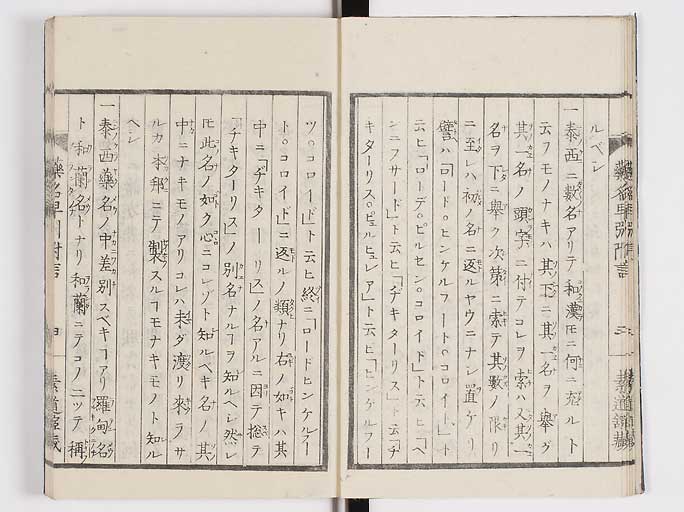 ルベシ
一泰西ニ数名アリテ和漢ニ何ニ充ルト
云フモノナキハ其下ニ其一名ヲ舉グ
其一名ノ頭字ニ付テコレヲ索ハ又其一
名ヲ下ニ舉ク次第ニ索テ其数ノ限リ
ニ至レハ初ノ名ニ返ルヤウニナシ置ケリ
譬ハ「ロードヒンケルフートコロイド」ト
云ヒ「ローデ。ピルセン。コロイド」ト云ヒ「ヘ
シニフサード」ト云ヒ「ヂキターリス」ト云「ヂ
キターリス。ピュルピュレア」ト云ヒ「ヒンゲルフー
ツ。コロイド」ト云ヒ終ニ「ロードヒンケルフー
ト。コロイド」ニ返ルノ類ナリ右ノ如キハ其
中ニ「ヂキターリス」ノ名アルニ因テ捴テ
「ヂキターリス」ノ別名ナルヿヲ知ルベシ然レ
𪜈此名ノ如ク心ニコレゾト知ルベキ名ノ其
中ニナキモノアリコレハ未ダ渡リ來ラサ
ルカ本邦ニテ製スルヿモナキモノト知ル
ヘシ
一泰西藥名ノ中差別スベキヿアリ羅甸名
ト和蘭名トナリ和蘭ニテコノ二ツテ稱
藥名早引附言